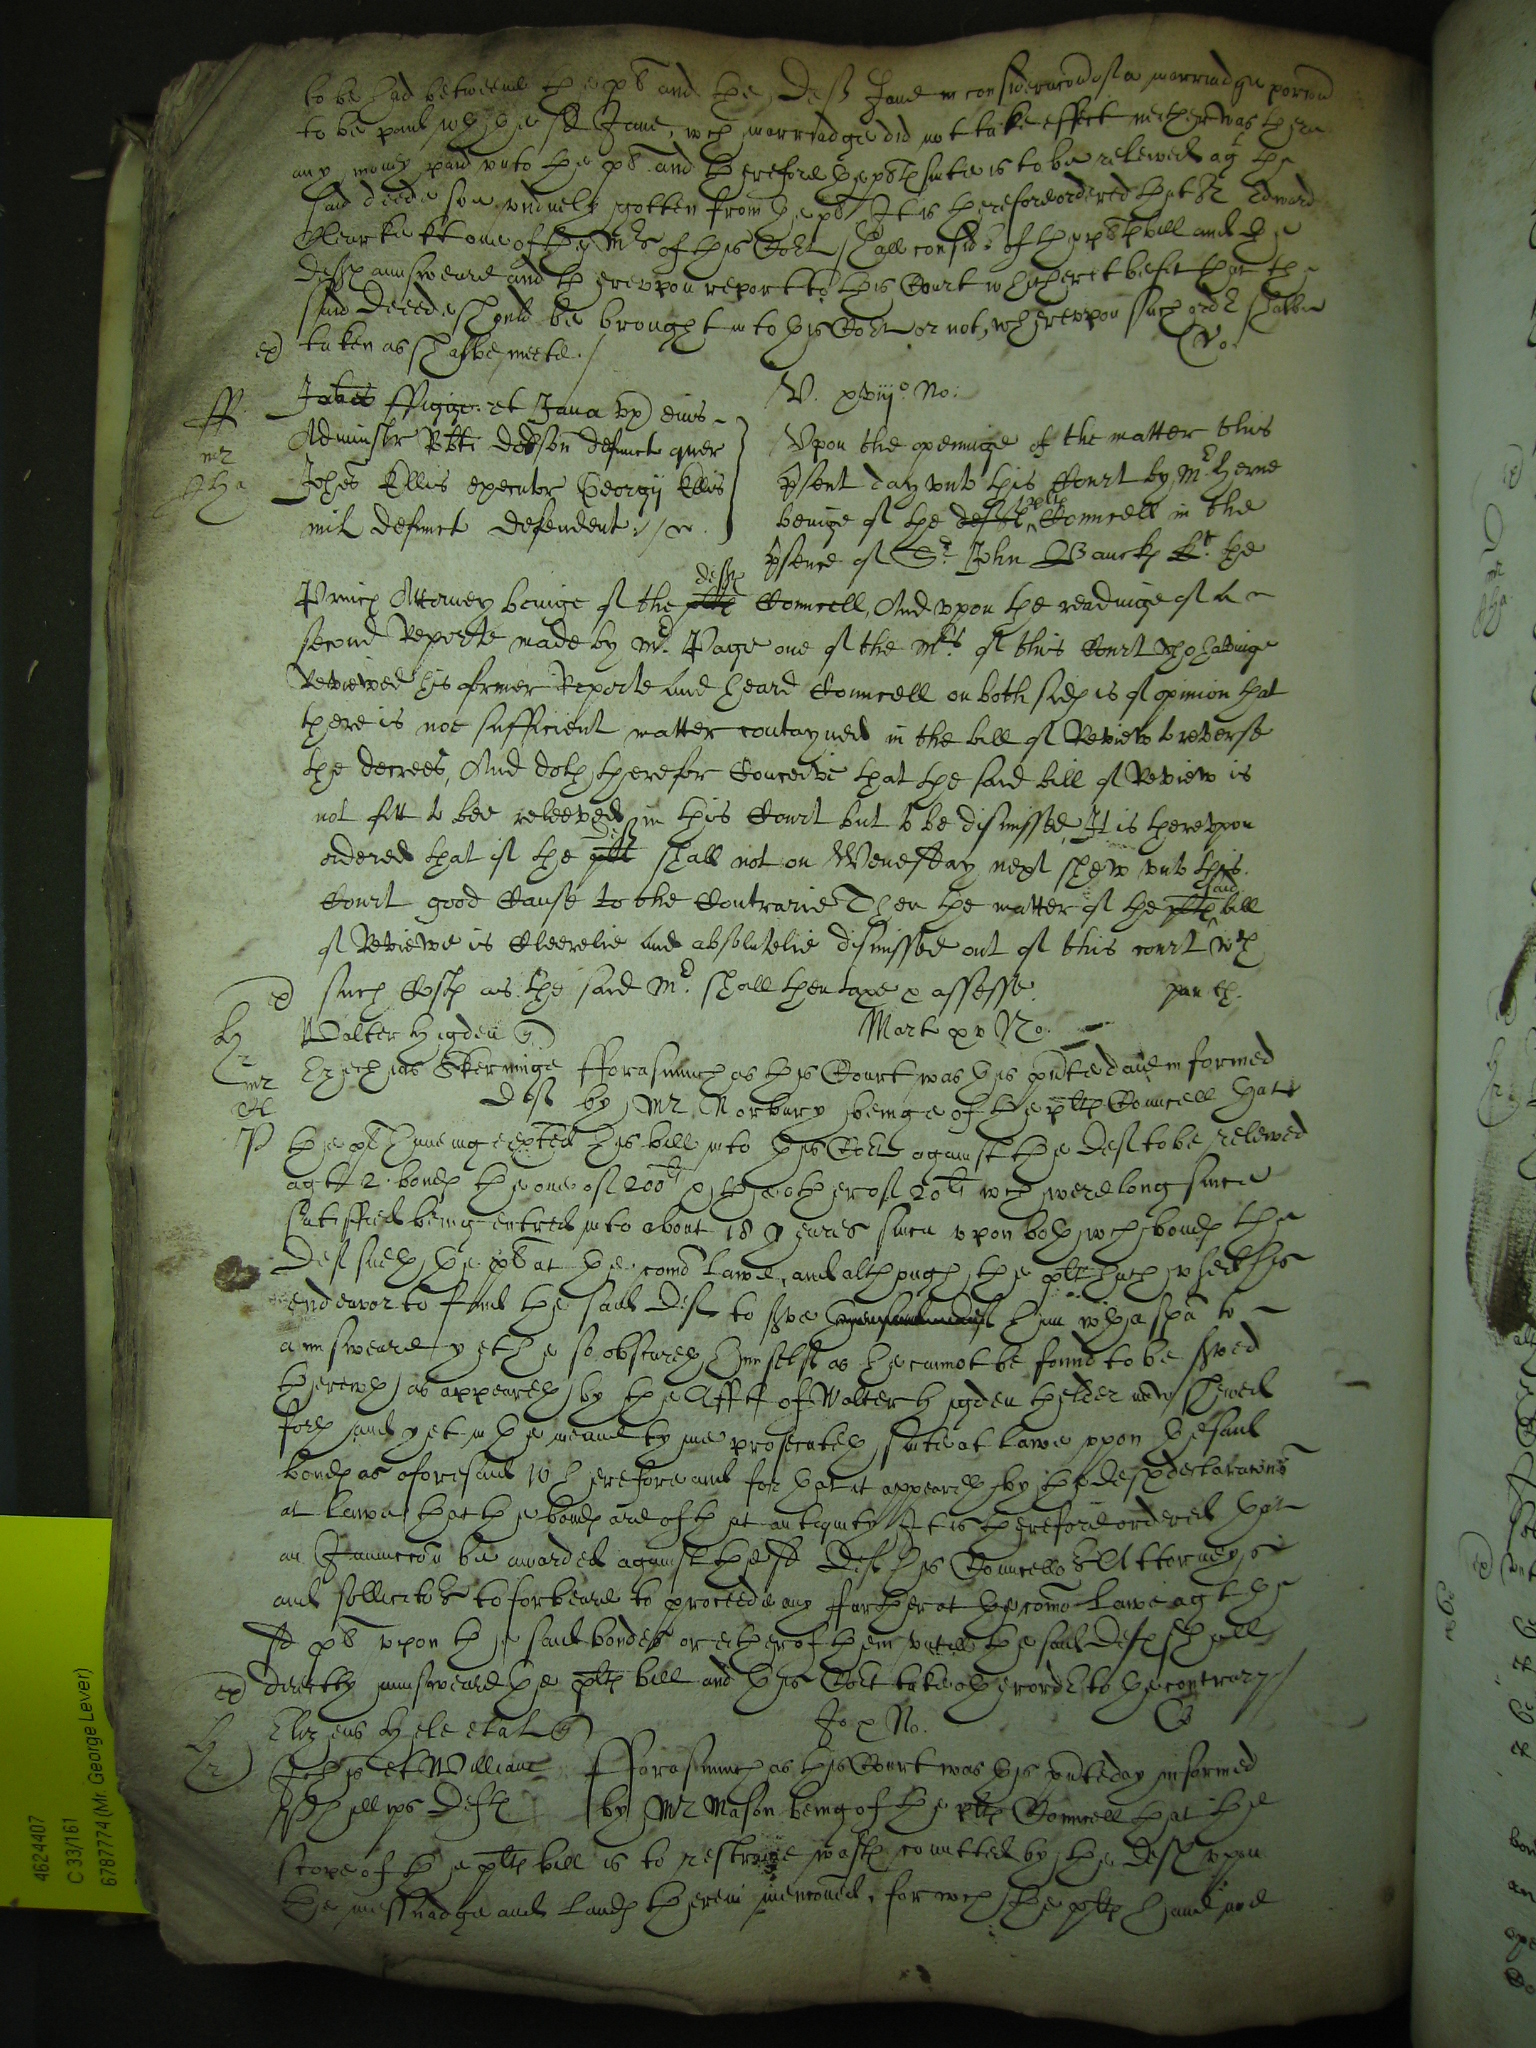 to be had betweene the pl and the deft Jane in consideracon of a marriadge porcon
to be paid wth the sd Jane, wch marriadge did not take effect neither was there
any money paid vnto the pl and therefore the plts suite is to be releived agt the
said deede soe vnduely gotten from the pl It is therefore ordered that Sr Edward
Clearke kt one of the Mrs of this Cort shall considr of the plts bill and the
defts aunsweare and therevpon report to this Court whether it befit that the
said deede should be brought into this Cort or not, wherevpon such ordr shalbe
taken as shalbe meete /
ex
ff
mr
Johes ffigge et Jana vx eius
V. xviijo No:
Administr Robti Dobson defunct quer
Johes Ellis executor Georgij Ellis
mil defunct defendent
Vpon the openinge of the matter this
psent day vnto this Court by Mr. Herne
beinge of the defts plts Councell in the
psence of Sr. John Banckes Kt. the
defts
Princs Attorney beinge of the plts Councell, And vpon the readinge of a
second Reporte made by Mr. Page one of the Mrs of this Court who havinge
Reviewed his former Reporte and heard Councell on both sides is of opinion that
there is not sufficient matter contayned in the bill of Review to reverse
the decree, And doth therefor Conceive that the said bill of Review is
not fitt to bee releeved in this Court but to be dismissed, It is therevpon
ordered that if the plt deft shall not on Wenesday next shew vnto this
Court good Cause to the Contrarie Then the matter of the plts said bill
of Reviewe is Cleerelie and absolutelie dismissed out of this court wth
such Costs as the said Mr. shall then taxe & assesse
ex
H
mr
Walter Higden q
Mart xv No.
Ezechias Skerminge
deft
fforasmuch as this Court was this pnte daie informed
by Mr Norbury beinge of the plts Councell that
the pl haueing exhited his bill into this Cort against the deft to be releived
agt 2. bonds the one of 200li & the other of 20li wch were long since
satisfied being entred into about 18 yeares since vpon both wch bonds the
deft sueth the pl at the comon Lawe, and although the plt hath vsed his
endeavor to find the said deft to serve him wth a spa to
aunsweare yet he so obscureth himselfe as he cannot be found to be served
therewth as appeareth by the Affit of Walter Higden thelder now shewed
forth and yet in the meane tyme prosecuteth suite at Lawe vpon the said
bonds as aforesaid Wherefore and for that it appeareth by the defts declaracons
at Lawe that the bonds are of that antiquity It is therefore ordered that
an Iniunccon be awarded against the sd deft his Councello & Attorneys
and sollicitors to forbeare to proceede any further at the comon Lawe agt the
sd pl vpon the said bondes or either of them vntill the said deft shall
directly aunsweare the plts bill and this Cort take other ordr to the contrary //
ex
H
Elizeus Hele et al q
Jo x No.
Johis et Williams
Phillips Defts
fforasmuch as this Court was this pnte day informed
by Mr Mason being of the plts Councell that the
scope of the plts bill is to restraine wasts comitted by the deft vpon
the messuadge and lands therein mencioned, for wch the plts haue
4624407
C 33/161
6787774 (Mr. George Lever)